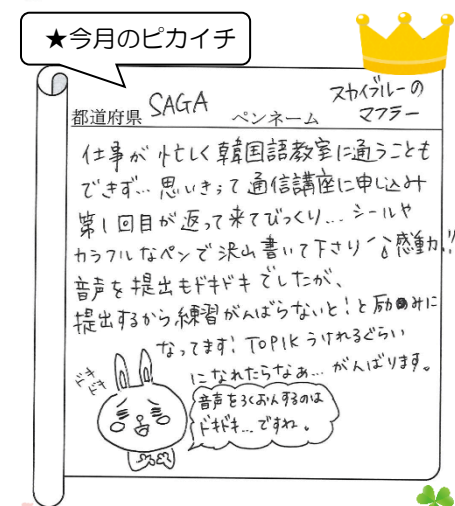 ★今月のピカイチ
都道府県 SAGA ペンネーム スカイブルーの
マフラー
仕事が忙しく韓国語教室に通うことも
できず… 思いきって通信講座に申し込み
第1回目が返って来てびっくり… シールや
カラフルなペンで沢山書いて下さり 感動!!
音声を提出もドキドキでしたが、
提出するから練習がんばらないと!と励みに
なってます! TOPIKうけれるぐらい
になれたらなぁ… がんばります。
ドキ
ドキ
音声をろくおんするのは
ドキドキ…ですね。